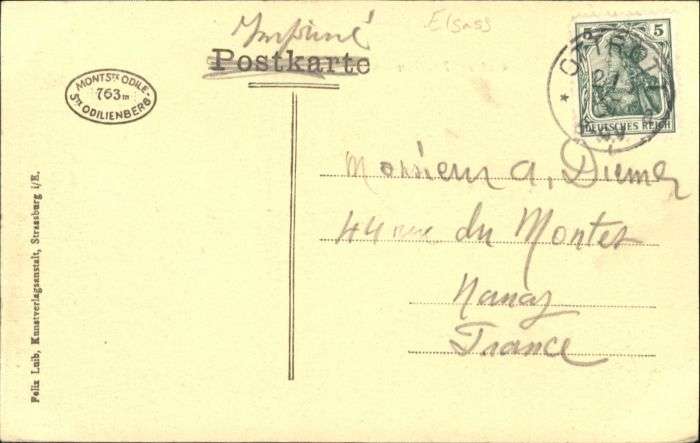 Imprimé
Elsass
Postkarte
MONT STE ODILE -
763 m
STE ODILIENBERG
5 5
OTTROTT
DEUTSCHES REICH
Monsieur A. Diemer
44 rue du Montet
Nancy
France
Felix Luib, Kunstverlagsanstalt, Strassburg i/E.